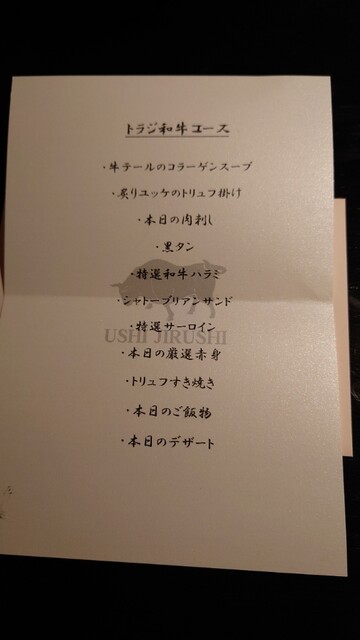 トラジ和牛コース
・牛テールのコラーゲンスープ
・炙りユッケのトリュフ掛け
・本日の肉刺し
・黒タン
・特選和牛ハラミ
・シャトーブリアンサンド
・特選サーロイン
USHI JIRUSHI
・本日の厳選赤身
・トリュフすき焼き
・本日のご飯物
・本日のデザート